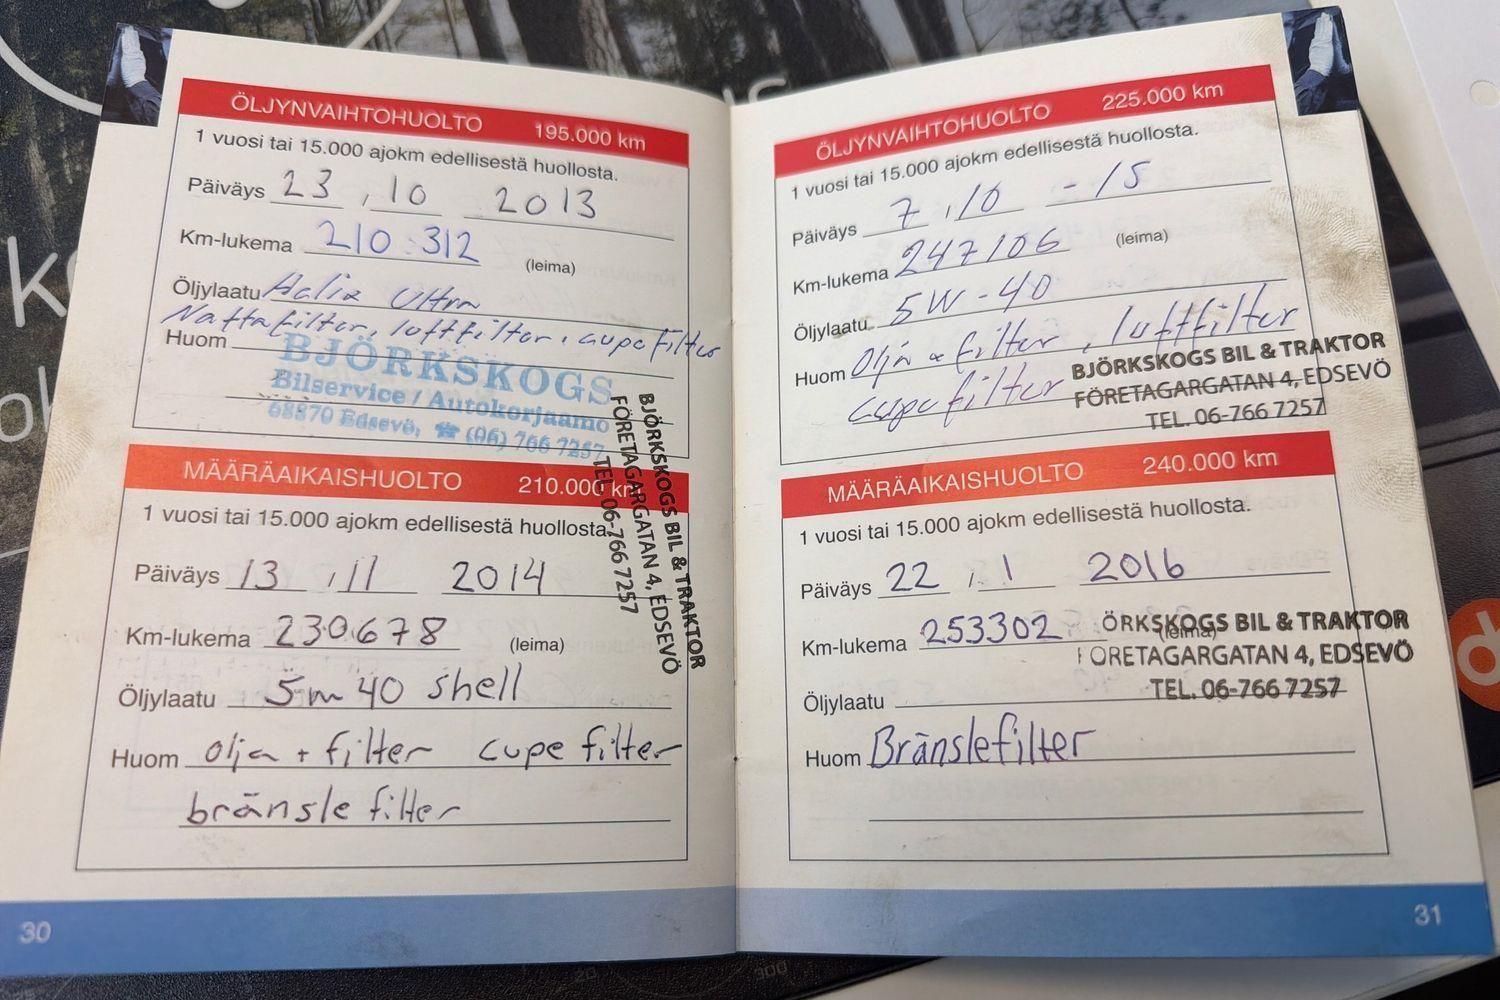 ÖLJYNVAIHTOHUOLTO 195.000 km
1 vuosi tai 15.000 ajokm edellisestä huollosta.
Päiväys 23 . 10 2013
Km-lukema 210.312 (leima)
Öljylaatu Helix Ultra
filter, luftfilter, cupefilter
Huom
BJÖRKSKOGS
Bilservice / Autokorjaamo
68870 Edsevö, ☎ (06) 766 7257
BJÖRKSKOGS BIL & TRAKTOR
FÖRETAGARGATAN 4, EDSEVÖ
TEL. 06-766 7257
MÄÄRÄAIKAISHUOLTO 210.000 km
1 vuosi tai 15.000 ajokm edellisestä huollosta.
Päiväys 13 . 11 2014
Km-lukema 230678 (leima)
Öljylaatu 5w 40 shell
Huom olja + filter cupe filter
bränsle filter
30
ÖLJYNVAIHTOHUOLTO 225.000 km
1 vuosi tai 15.000 ajokm edellisestä huollosta.
Päiväys 7 . 10 - 15
Km-lukema 247106 (leima)
Öljylaatu 5W-40
Huom Olja & filter, luftfilter
cupefilter
BJÖRKSKOGS BIL & TRAKTOR
FÖRETAGARGATAN 4, EDSEVÖ
TEL. 06-766 7257
MÄÄRÄAIKAISHUOLTO 240.000 km
1 vuosi tai 15.000 ajokm edellisestä huollosta.
Päiväys 22 . 1 2016
Km-lukema 253302 (leima)
ÖRKSKOGS BIL & TRAKTOR
ORETAGARGATAN 4, EDSEVÖ
TEL. 06-766 7257
Öljylaatu
Huom Bränslefilter
31